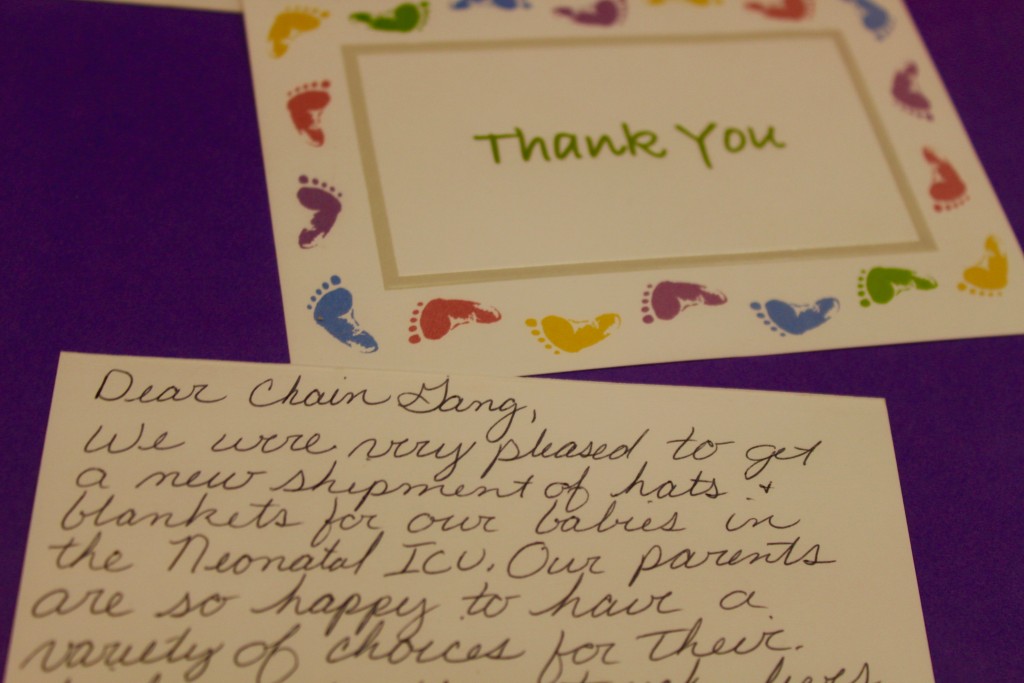 Thank You
Dear Chain Gang,
We were very pleased to get
a new shipment of hats &
blankets for our babies in
the Neonatal ICU. Our parents
are so happy to have a
variety of choices for their.